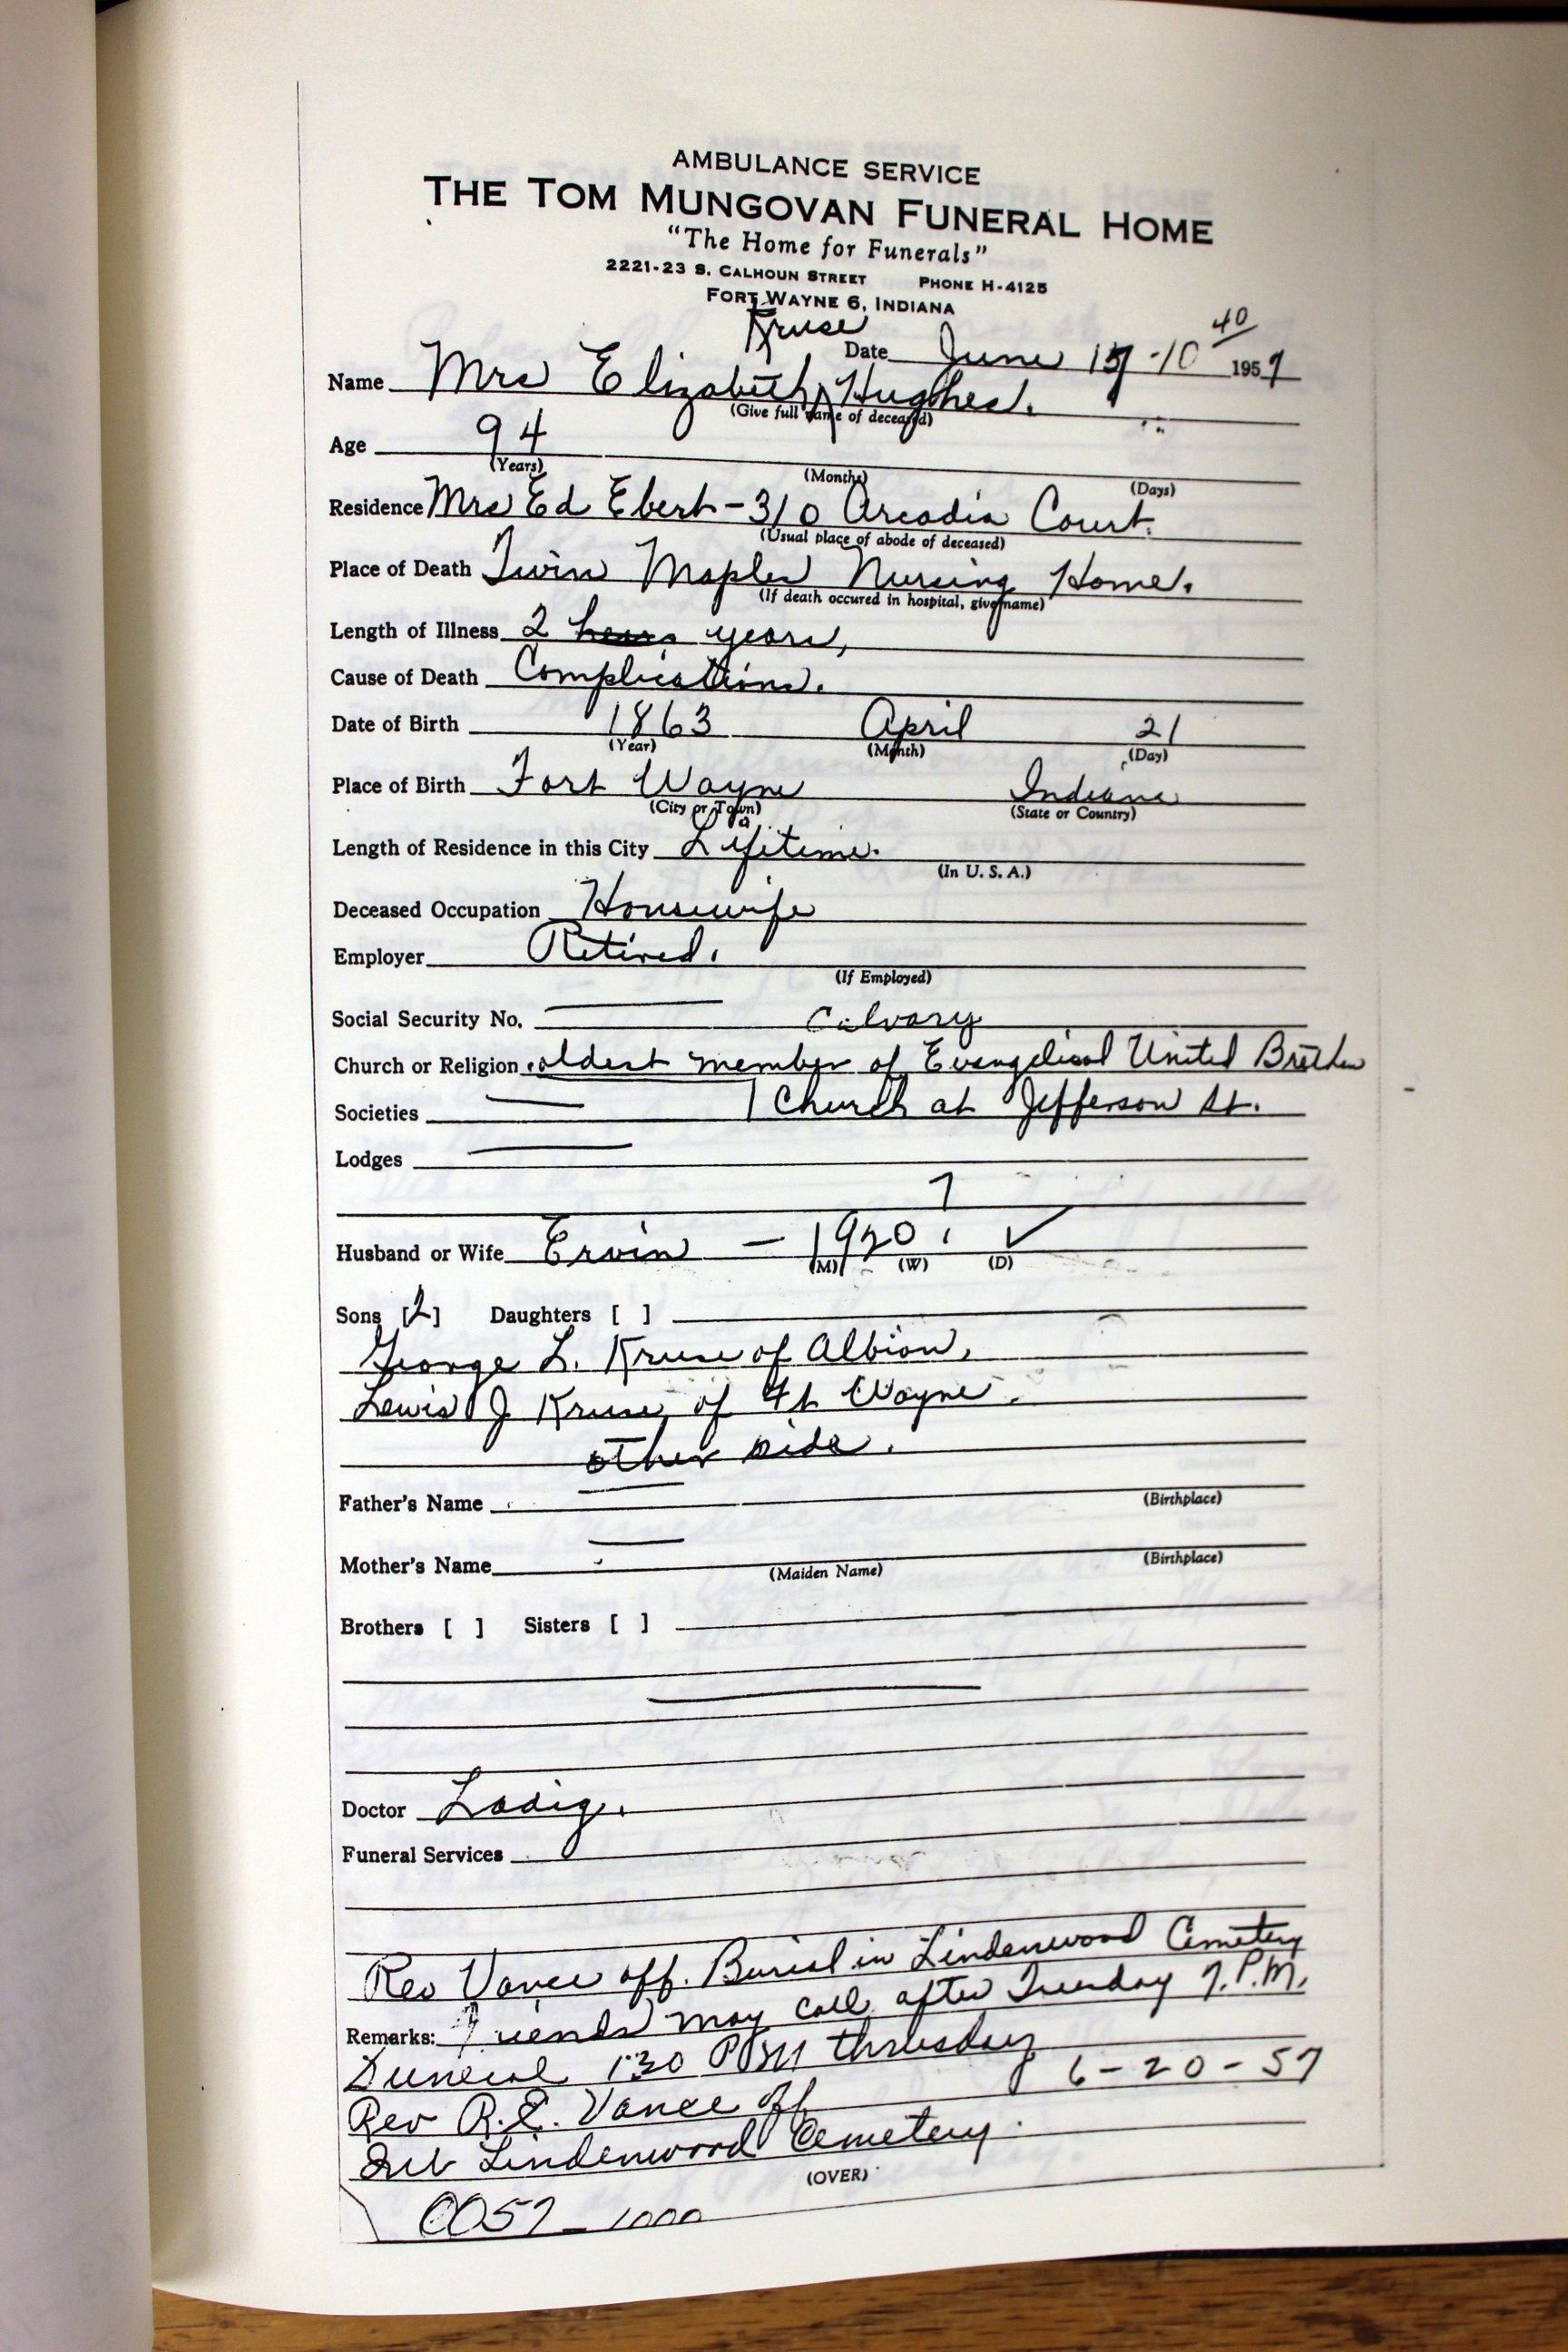 AMBULANCE SERVICE
THE TOM MUNGOVAN FUNERAL HOME
"The Home for Funerals"
2221-23 S. CALHOUN STREET PHONE H-4125
FORT WAYNE 6, INDIANA
Kruse
Date June 17 - 10 40 1957
Name Mrs Elizabeth Hughes.
(Give full name of deceased)
Age 94
(Years) (Months) (Days)
Residence Mrs Ed Ebert - 310 Arcadia Court.
(Usual place of abode of deceased)
Place of Death Twin Maples Nursing Home.
(If death occured in hospital, give name)
Length of Illness 2 years,
Cause of Death Complications.
Date of Birth 1863 April 21
(Year) (Month) (Day)
Place of Birth Fort Wayne Indiana
(City or Town) (State or Country)
Length of Residence in this City Lifetime.
(In U. S. A.)
Deceased Occupation Housewife
Employer Retired.
(If Employed)
Social Security No. Calvary
Church or Religion oldest member of Evangelical United Brethen
Societies Church at Jefferson St.
Lodges
7
Husband or Wife Ervin - 1920. ✓
(M) (W) (D)
Sons [2] Daughters [ ]
George L. Kruse of Albion,
Lewis J Kruse, of Ft Wayne.
other side.
Father's Name
(Birthplace)
Mother's Name
(Maiden Name) (Birthplace)
Brothers [ ] Sisters [ ]
Doctor Ladig.
Funeral Services
Rev Vance off. Burial in Lindenwood Cemetery
Remarks: Friends may call after Tuesday 7. P.M.
Funeral 1:30 PM thrusday
6-20-57
Rev R.E. Vance off
Int Lindenwood Cemetery.
(OVER)
0057 - 1000